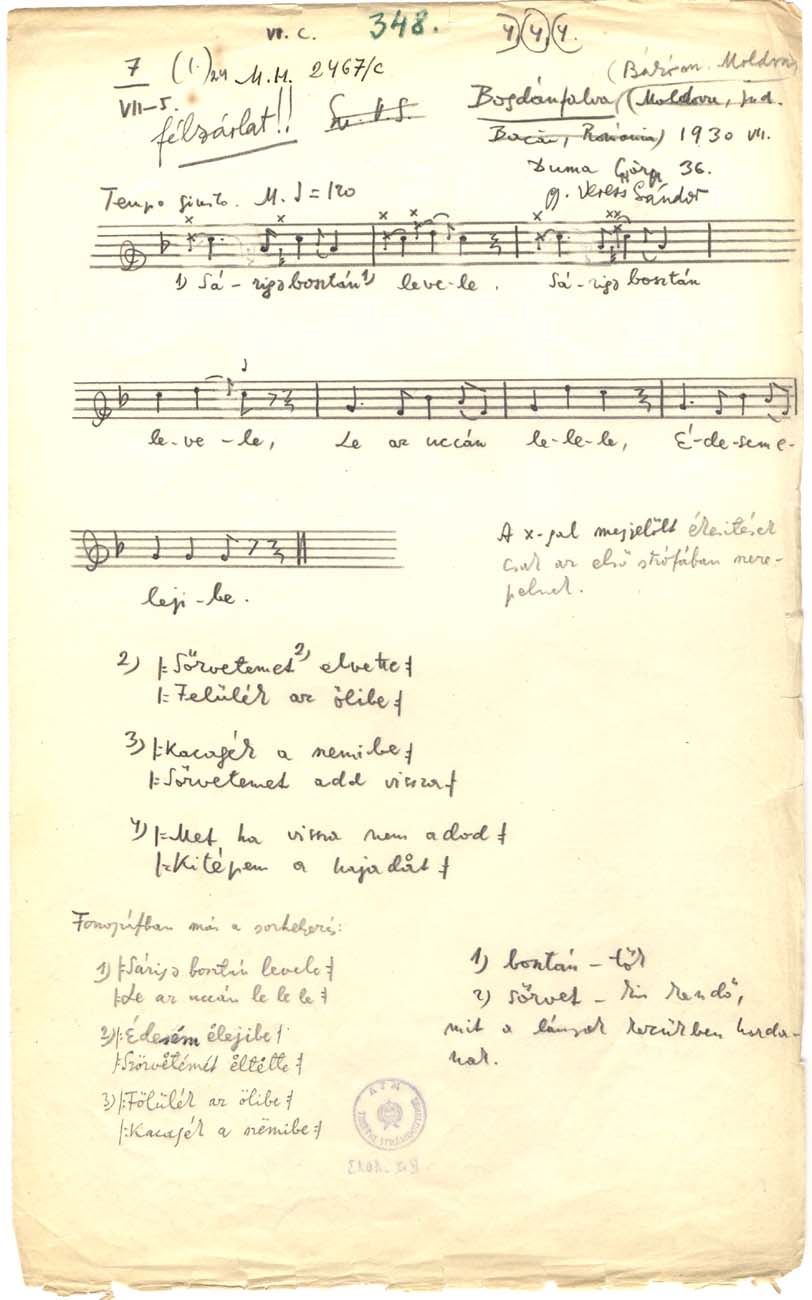 VI. C. 348. 4, 4, 4.
7 (1.) 24 M.H. 2467/c (Bákóm. Moldva)
VII–5. félzárlat!! Bogdánfalva (Moldova, jud.
Bacău, Románia) 1930 VII.
Duma György 36.
Tempo giusto. M. ♩ = 120 gy. Veress Sándor
1) Sá - riga bosztán 1) leve-le. Sá-riga bosztán
le-ve-le, Le az uccán le-le-le, É-de-sem e-
leji-be.
A x-gal megjelölt ékesítések
csak az első strófában szere-
pelnek.
2) |: Sőrvetemet 2) elvette :|
|: Felülék az ölibe :|
3) |: Kacagék a szemibe :|
|: Sőrvetemet add vissza :|
4) |: Met ha vissza nem adod :|
|: Kitépem a hajadåt :|
Fonográfban más a sorbeosztás:
1) |: Sáriga bosztán levele :|
|: Le az uccán le le le :|
2) |: Édesëm élejibe :|
|: Szörvëtëmët ëltëtte :|
3) |: Fölülék az ölibe :|
|: Kacagék a szëmibe :|
1) bosztán – tök
2) sőrvet – kis kendő,
mit a lányok kezükben horda-
nak.